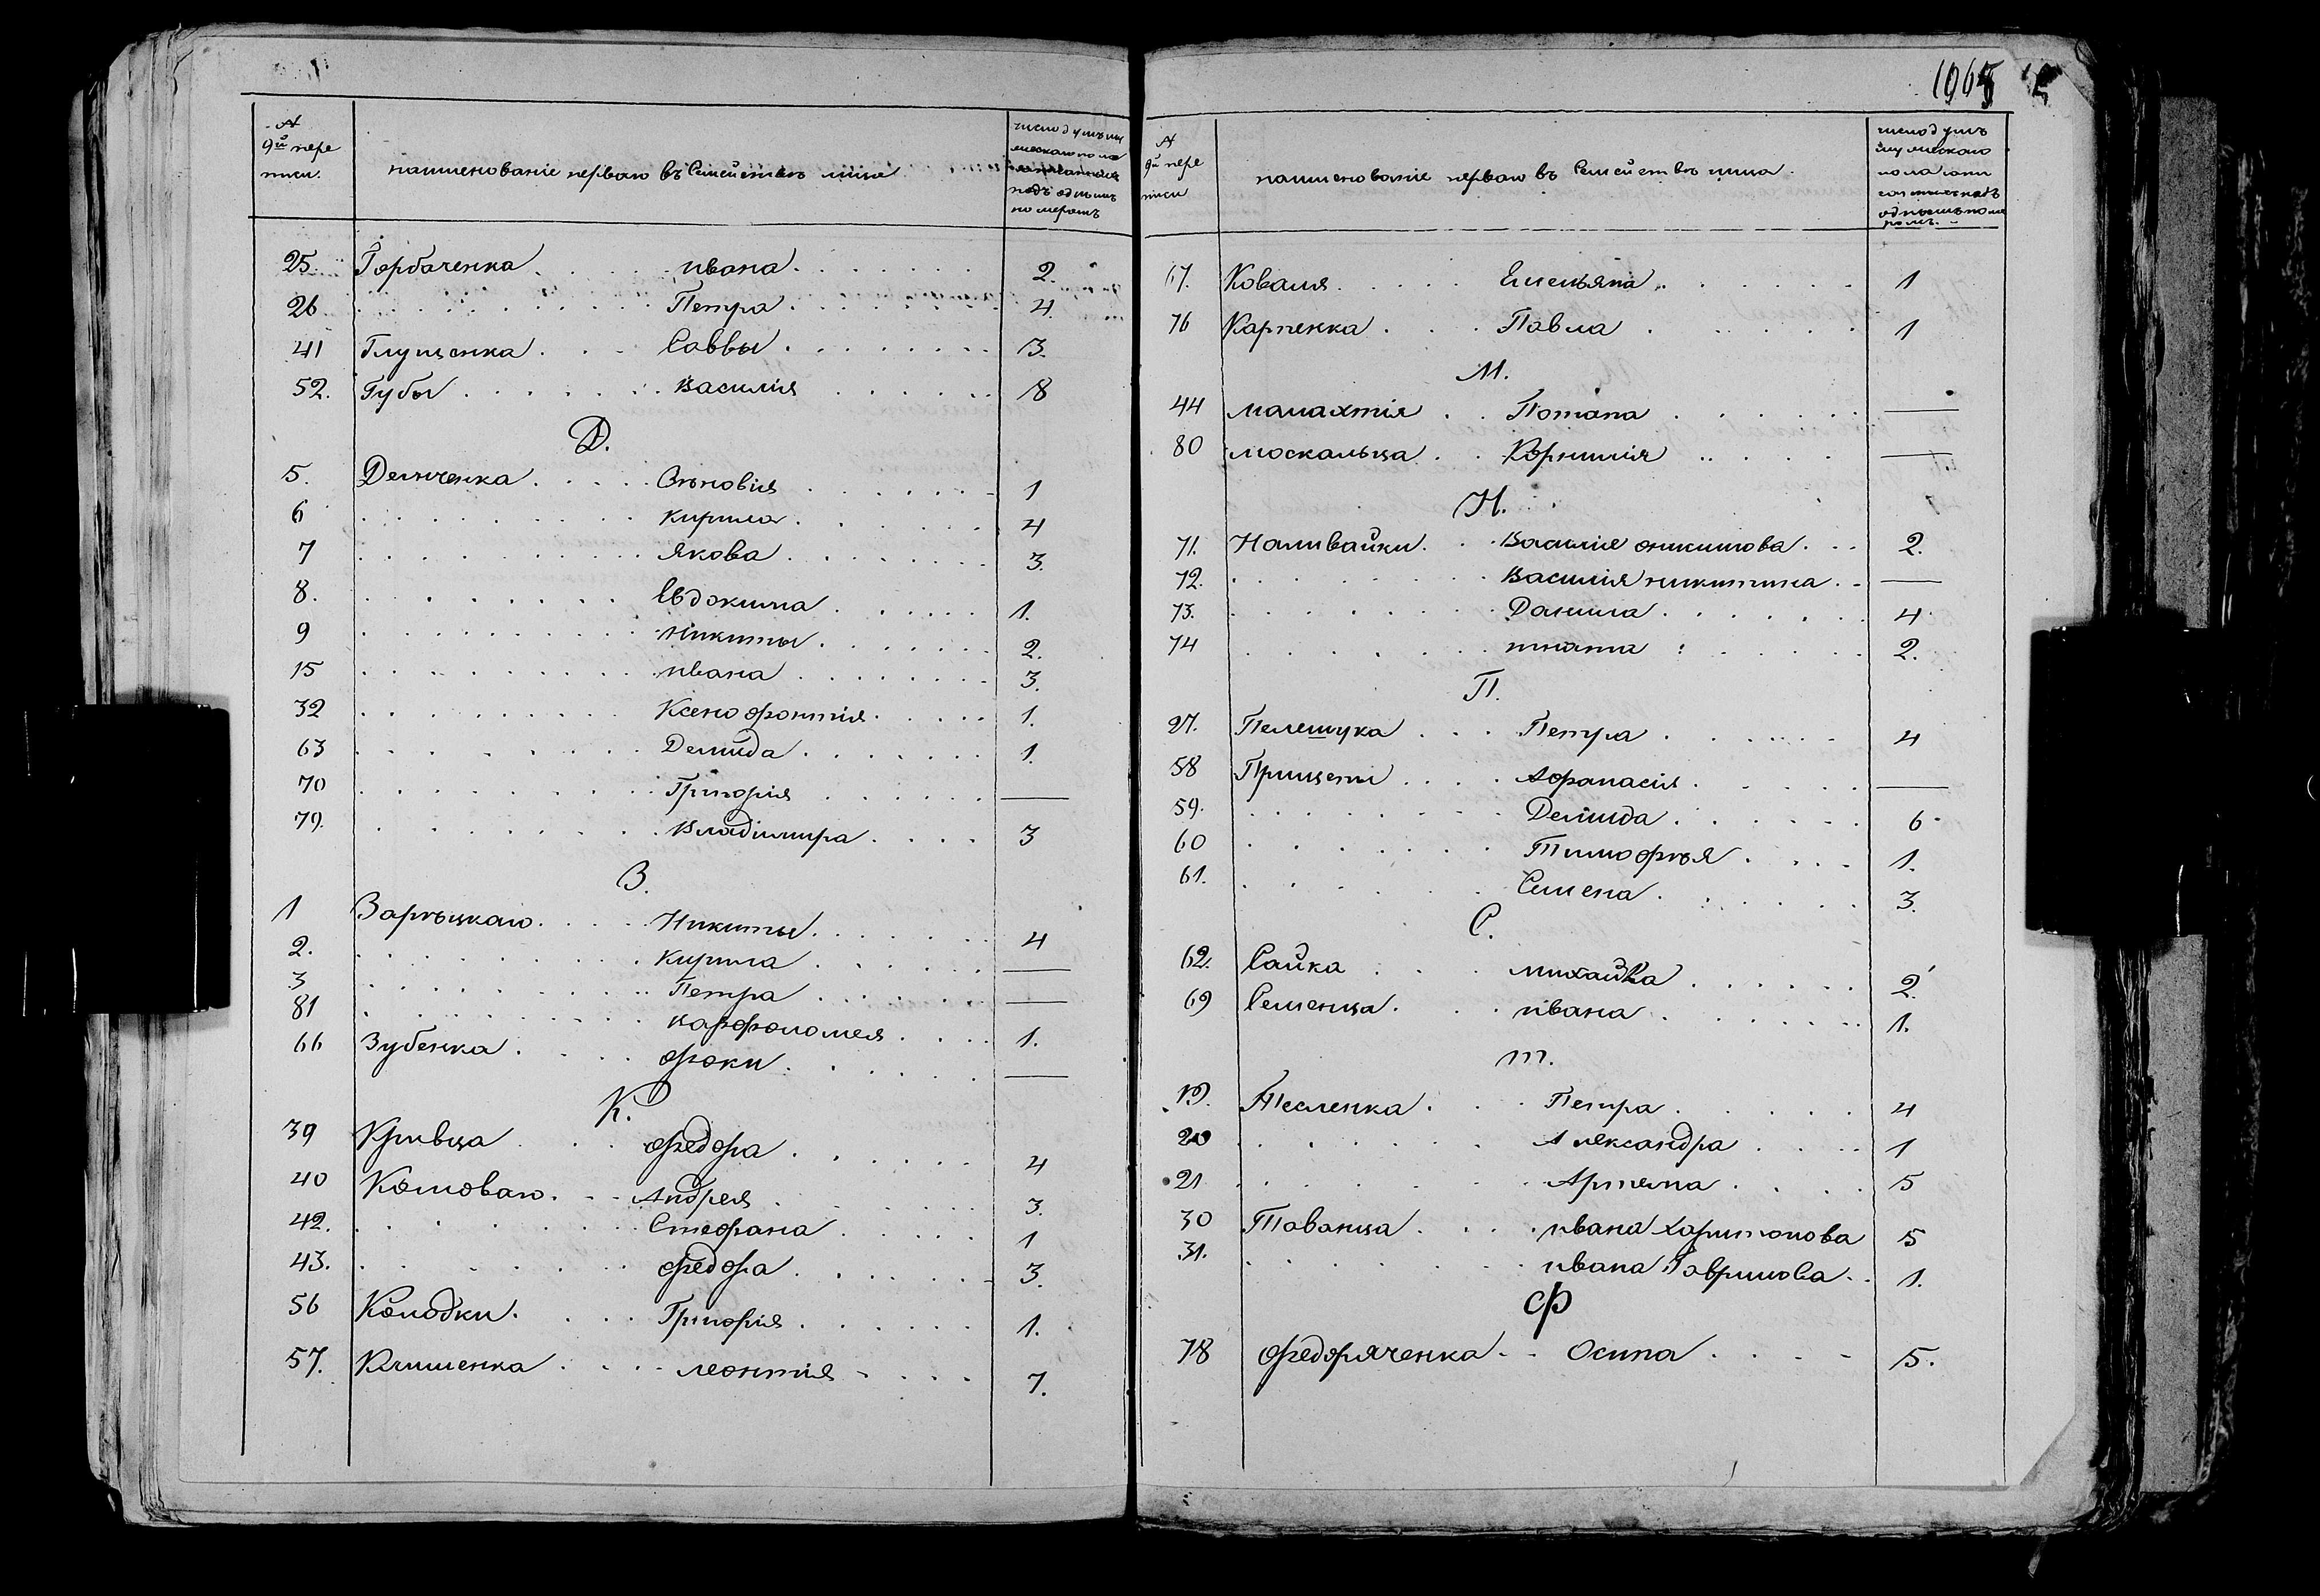 № 9й пере писи. наименованіе перваго въ Семействѣ лица число душъ му
ческаго пола
подъ однимъ
номеромъ
25. Горбаченка ивана 2.
26 Петра 4.
41 Глущенка Саввы 3.
52. Губы Василія 8
Д.
5. Демченка Зѣновія 1
6 Кирила 4
7 Якова 3.
8. Евдокима 1.
9 Никиты 2.
15 ивана 3.
32 Ксенофонтія 1.
63 Демида 1.
70 Григорія —
79. Владиміра 3
З.
1 Зарѣцкаго Никиты 4
2. Кирила —
3 Петра —
81 Варфоломея 1.
66 Зубенка Фоки —
К.
39 Кривца Федора 4
40 Комоваго Андрея 3.
42. Стефана 1
43. Федора 3.
56 Колодки Григорія 1.
57. Климченка Леонтія 7.
1965
№ 9й пере писи наименованіе перваго въ Семействѣ лица. число душъ
мужескаго
пола
подъ
однимъ номе
ромъ.
67. Коваля Емельяна 1
76 Карпенка Павла 1
М.
44 Малахтія Потапа —
80 Москальца Корнилія —
Н.
71. Наливайки Василія Аникитова 2.
72. Василія Никитина —
73. Данила 4
74 игната 2.
П.
27. Пелешука Петра 4
58 Прищепы Афанасія —
59. Демида 6
60 Тимофѣя 1.
61. Семена 3.
С.
62. Сайка Михайла 2.
69 Семенца ивана 1.
Т.
19. Тесленка Петра 4
20 Александра 1
21 Артема 5
30 Таванца ивана Харитонова 5
31. ивана Гаврилова 1.
Ф
78 Федоряченка Осипа 5.